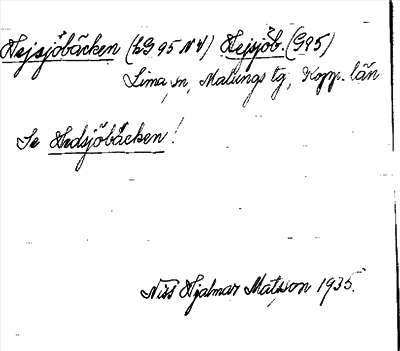 Hejsjöbäcken (LG 95 NV) Hejsjöb. (G95)
Lima sn, Malungs tg, Kopp. län
Se Hedsjöbäcken!
Niss Hjalmar Matsson 1935.